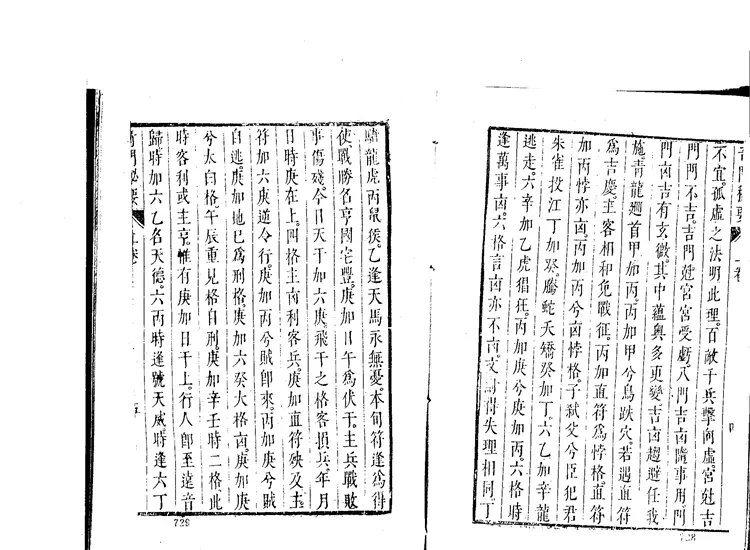 不宜。孤虛之法明此理。百敵千兵擊向虛。宮尅吉
門門不吉。吉門尅宮宮受虧。八門吉凶隨事用。門
門凶吉有玄微。其中蘊奧多更變。吉凶趨避任我
施。青龍廻首甲加丙。丙加甲兮鳥跌穴。若遇直符
爲吉慶。主客相和免戰征。丙加直符爲悖格。直符
加丙悖亦凶。丙加丙兮凶悖格。子弒父兮臣犯君
朱雀投江丁加癸。騰蛇夭矯癸加丁。六乙加辛龍
逃走。六辛加乙虎猖狂。丙加庚兮庚加丙。六格時
逢萬事凶。六格言凶亦不凶。得失理相同。丁
728
嘯龍虎丙鼠猴。乙逢天馬永無憂。本旬符逢爲得
使。戰勝名亨國宅豐。庚加日午爲伏干。主兵戰敗
事傷殘。今日天干加六庚。飛干之格客損兵。年月
日時庚在上。四格主凶利客兵。庚加直符殃及主
符加六庚道令行。庚加丙兮賊卽來。丙加庚兮賊
自逃。庚加地已爲刑格。庚加六癸大格凶。庚加庚
兮太白格。午辰重見格自刑。庚加辛壬時二格。此
時客利或主亨。惟有庚加日干上。行人卽至遠音
歸。時加六乙名天德。六丙時逢號天威。時逢六丁
奇門祕要
上卷
五
729